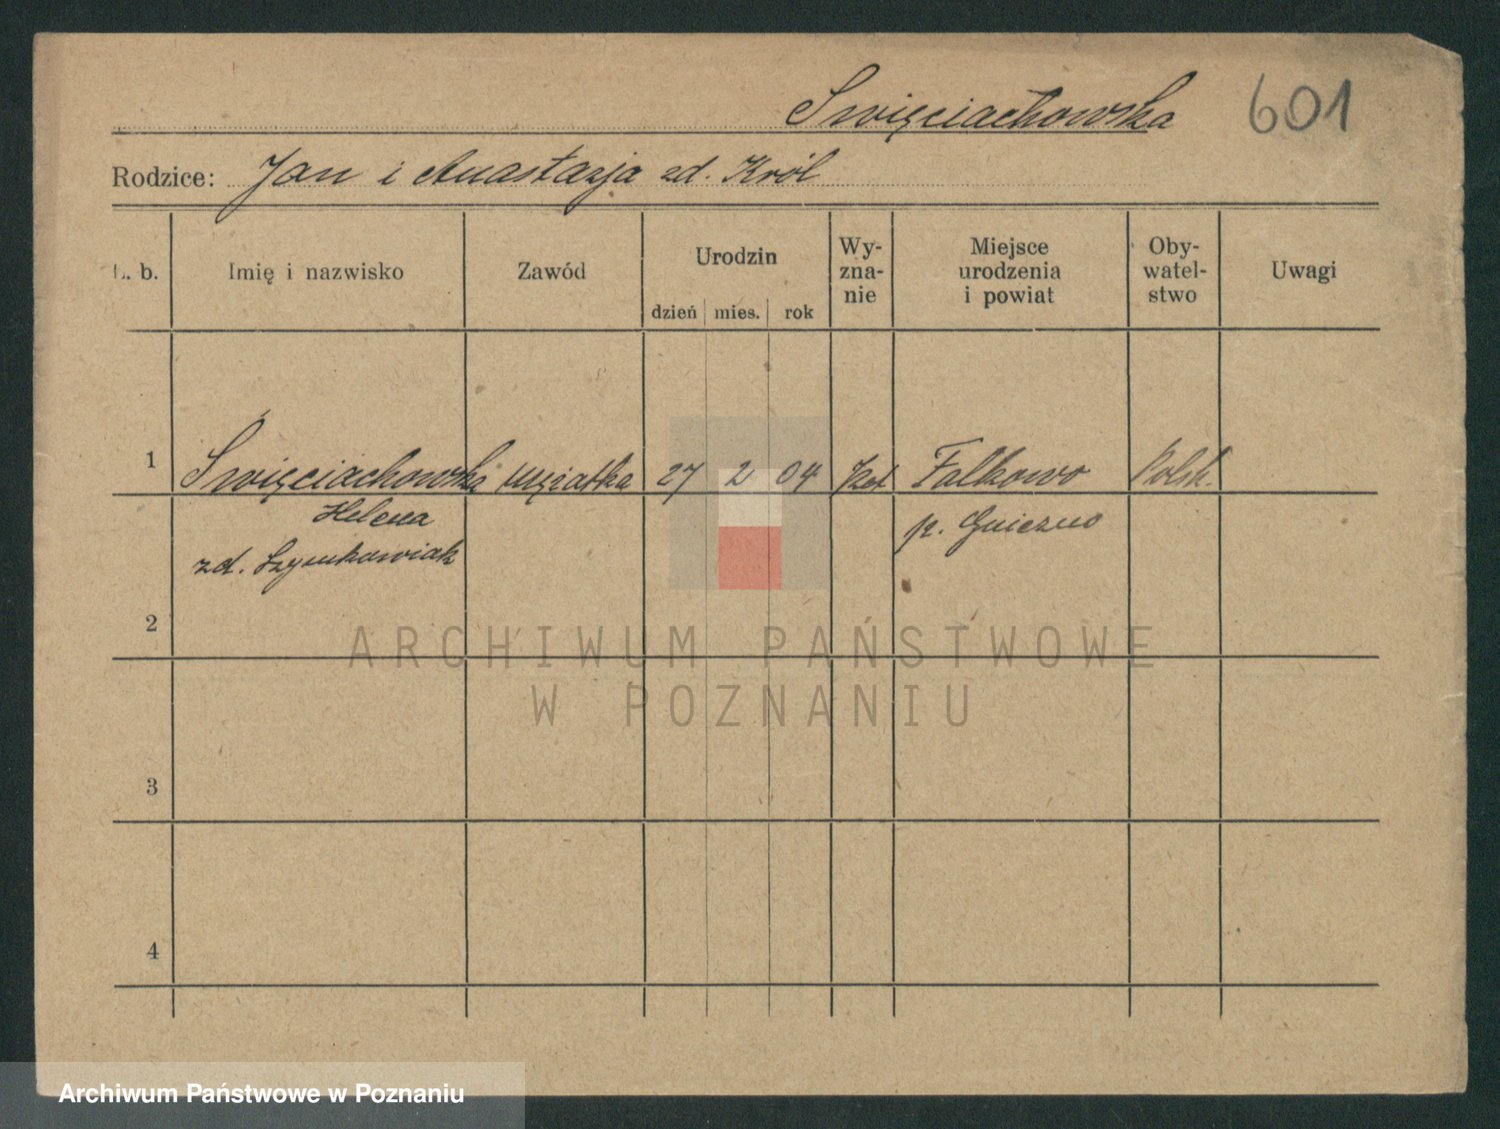 Swięciachowska 601
Rodzice: Jan i Anastazja zd. Król
L. b. Imię i nazwisko Zawód Urodzin dzień mies. rok Wy- zna- nie Miejsce urodzenia i powiat Oby- watel- stwo Uwagi
1 Święciachowska mężatka 27 2 04 kat Falkowo Polsk.
Helena p. Gniezno
zd. Szymkowiak
2
ARCHIWUM PAŃSTWOWE
W POZNANIU
3
4
Archiwum Państwowe w Poznaniu